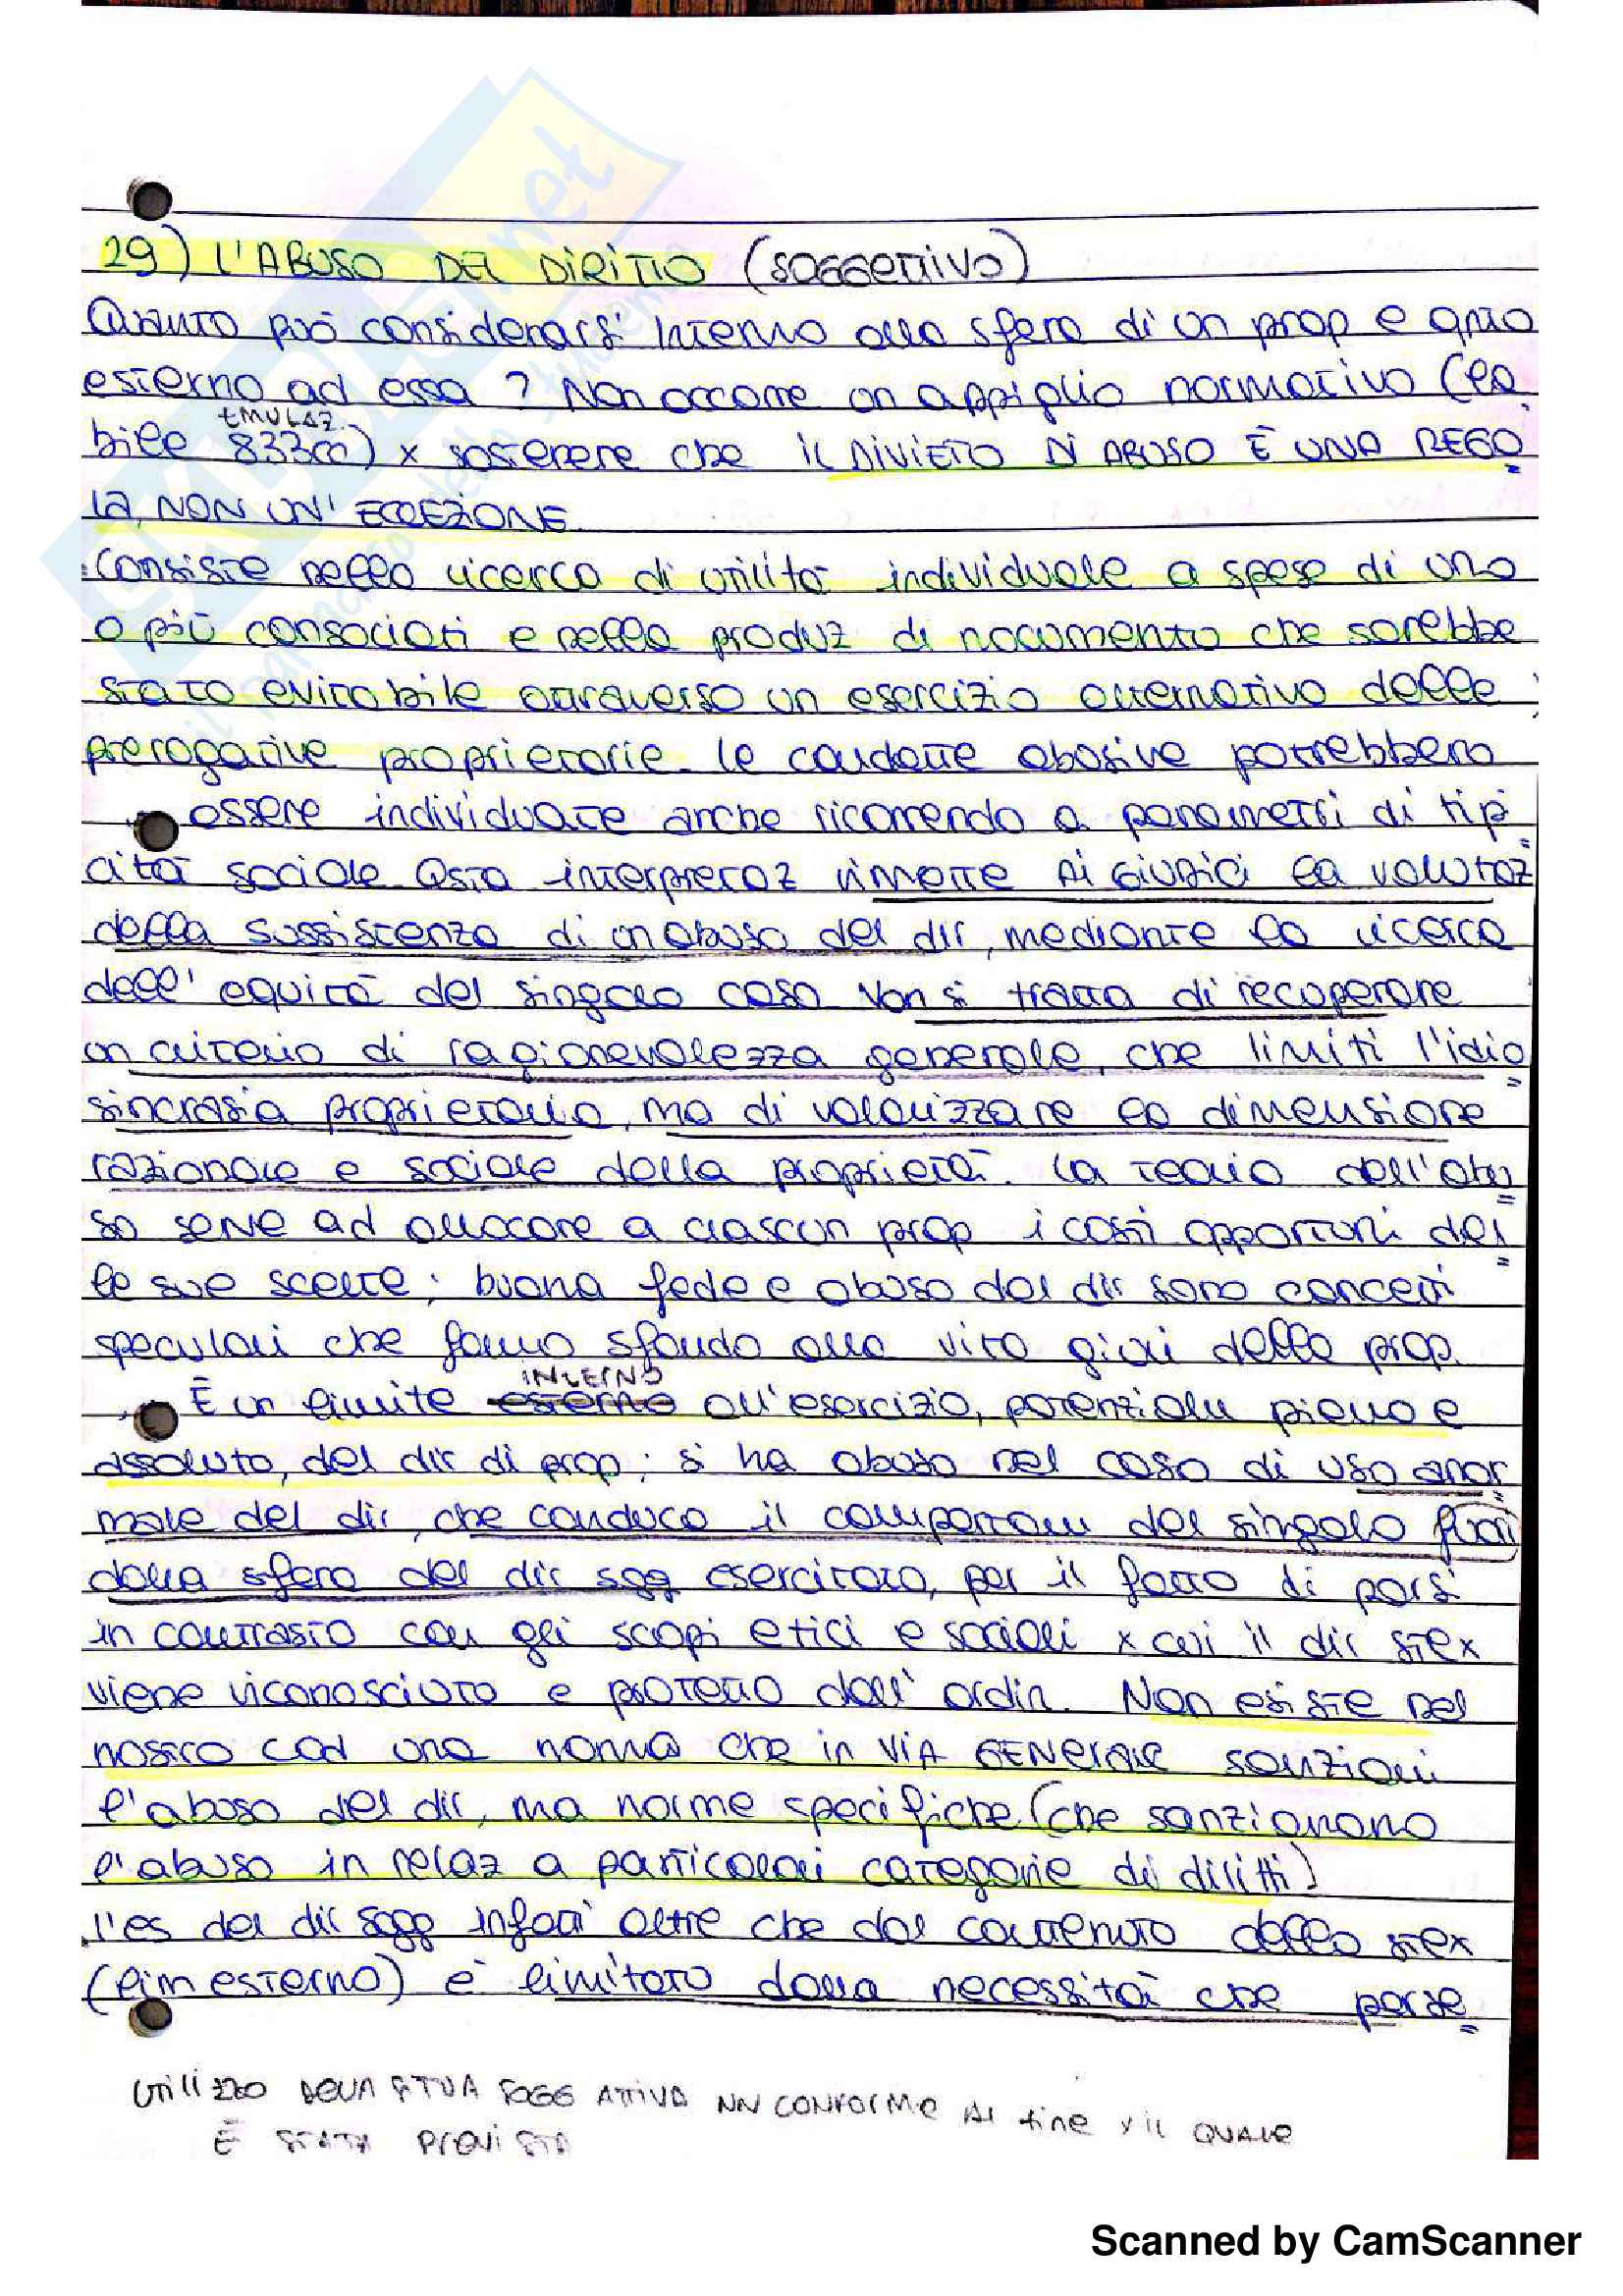 29) L'ABUSO DEL DIRITTO (SOGGETTIVO)
Quanto può considerarsi interno alla sfera di un prop e qnto
esterno ad essa? Non occorre un appiglio normativo (la
EMULAZ.
bile 833cc) x sostenere che IL DIVIETO DI ABUSO È UNA REGO
LA, NON UN' ECCEZIONE.
Consiste nella ricerca di utilità individuale a spese di uno
o più consociati e nella produz di nocumento che sarebbe
stato evitabile attraverso un esercizio alternativo delle
prerogative proprietarie. Le condotte abusive potrebbero
essere individuate anche ricorrendo a parametri di tipi
cità sociale. Qsta interpretaz rimette AI GIUDICI la valutaz
della sussistenza di un abuso del dir, mediante la ricerca
dell' equità del singolo caso. Non si tratta di recuperare
un criterio di ragionevolezza generale, che limiti l'idio
sincrasia proprietaria, ma di valorizzare la dimensione
razionale e sociale della proprietà. La teoria dell'abu
so serve ad allocare a ciascun prop i costi opportuni del
le sue scelte; buona fede e abuso del dir sono concetti
speculari che fanno sfondo alla vita giuri della prop.
INTERNO
È un limite esterno all'esercizio, potenzialm pieno e
assoluto, del dir di prop; si ha abuso nel caso di uso anor
male del dir, che conduca il comportam del singolo fuori
dalla sfera del dir sogg esercitato, per il fatto di porsi
in contrasto con gli scopi etici e sociali x cui il dir stex
viene riconosciuto e protetto dall' ordin. Non esiste nel
nostro cod una norma che in VIA GENERALE sanzioni
l'abuso del dir, ma norme specifiche (che sanzionano
l'abuso in relaz a particolari categorie di diritti)
L'es del dir sogg infatti oltre che dal contenuto dello stex
(lim esterno) è limitato dalla necessità che perse
UTILIZZO DELLA SITUA SOGG ATTIVA NN CONFORME AL fine x il QUALE
È STATA PREVISTA
Scanned by CamScanner